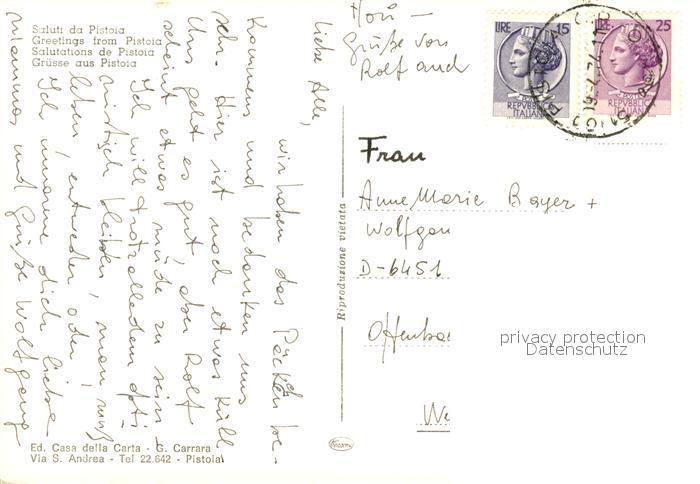 Saluti da Pistoia
Greetings from Pistoia
Salutations de Pistoia
Grüsse aus Pistoia
Liebe Alle,
wir haben das Päckchen be-
kommen und bedanken uns
sehr. Hier ist noch etwas kühl
Uns geht es gut, aber Rolf
scheint etwas müde zu sein.
Ich will trotzalledem opti-
mistisch bleiben, man muß
leben, entweder oder!
Ich umarme dich liebe
Mamma, und Grüße Wolfgang
Grüße von
Rolf auch
LIRE 15
REPVBBLICA
ITALIANA
LIRE 25
REPVBBLICA
ITALIANA
Frau
AnneMarie Bayer +
Wolfgan
D-6451
Offenba
We
Riproduzione vietata
privacy protection
Datenschutz
Ed. Casa della Carta - G. Carrara
Via S. Andrea - Tel 22.642 - Pistoia